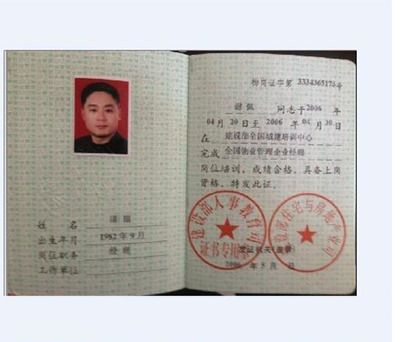 物岗证字第 3334365175号
谢佩 同志于2006 年
04 月 20 日至 2006 年 04 月 30 日
在 建设部全国城建培训中心
完成 全国物业管理企业经理
岗位培训，成绩合格，具备上岗
资格，特发此证。
发证机关(盖章)
2006 年 5 月 日
建设部人事教育司
证书专用章
建设部住宅与房地产业司
姓名
出生年月 1982 年 9 月
岗位职务 经理
工作单位